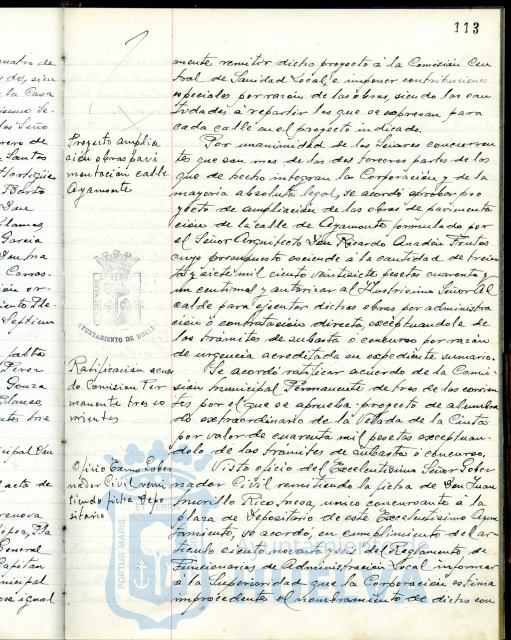 113
mente remitir dicho proyecto à la Comisión Cen
tral de Sanidad Local, e imponer contribuciones
especiales por razón de las obras, siendo las can
tidades à repartir las que se expresan para
cada calle en el proyecto indicado.
Proyecto amplia
ción obras pavi
mentación calle
Ayamonte
Por unanimidad de los Señores concurren
tes que son mas de las dos terceras partes de los
que de hecho integran la Corporación y de la
mayoria absoluta legal, se acordó aprobar pro
yecto de ampliación de las obras de pavimenta
ción de la calle de Ayamonte, formulado por
el Señor Arquitecto Don Ricardo Anadón Frutos
cuyo presupuesto asciende à la cantidad de trein
ta y siete mil ciento veintisiete pesetas cuarenta y
un centimos y autorizar al Ilustrisimo Señor Al
calde para ejecutar dichas obras por administra
ción ò contratación directa, exceptuandola de
los tràmites de subasta ò concurso por razón
de urgencia acreditada en expediente sumario.
AYUNTAMIENTO DE HUELVA
Ratificación acuer
do Comision Per
manente tres co
rrientes
Se acordó ratificar acuerdo de la Comi
sión Municipal Permanente de tres de los corrien
tes por el que se aprueba proyecto de alumbra
do extraordinario de la Velada de la Cinta
por valor de cuarenta mil pesetas exceptuan
dolo de los tramites de subasta ò concurso.
Oficio Excmo Gober
nador Civil remi
tiendo ficha Depo
sitario
Visto oficio del Excelentisimo Señor Gober
nador Civil remitiendo la ficha de Don Juan
Murillo Rico, unico concursante à la
plaza de Depositario de este Excelentisimo Ayun
tamiento, se acordó, en cumplimiento del ar
ticulo ciento noventa y seis del Reglamento de
Funcionarios de Administración Local informar
à la Superioridad que la Corporación estima
improcedente el nombramiento de dicho con
PORTUS MARIS